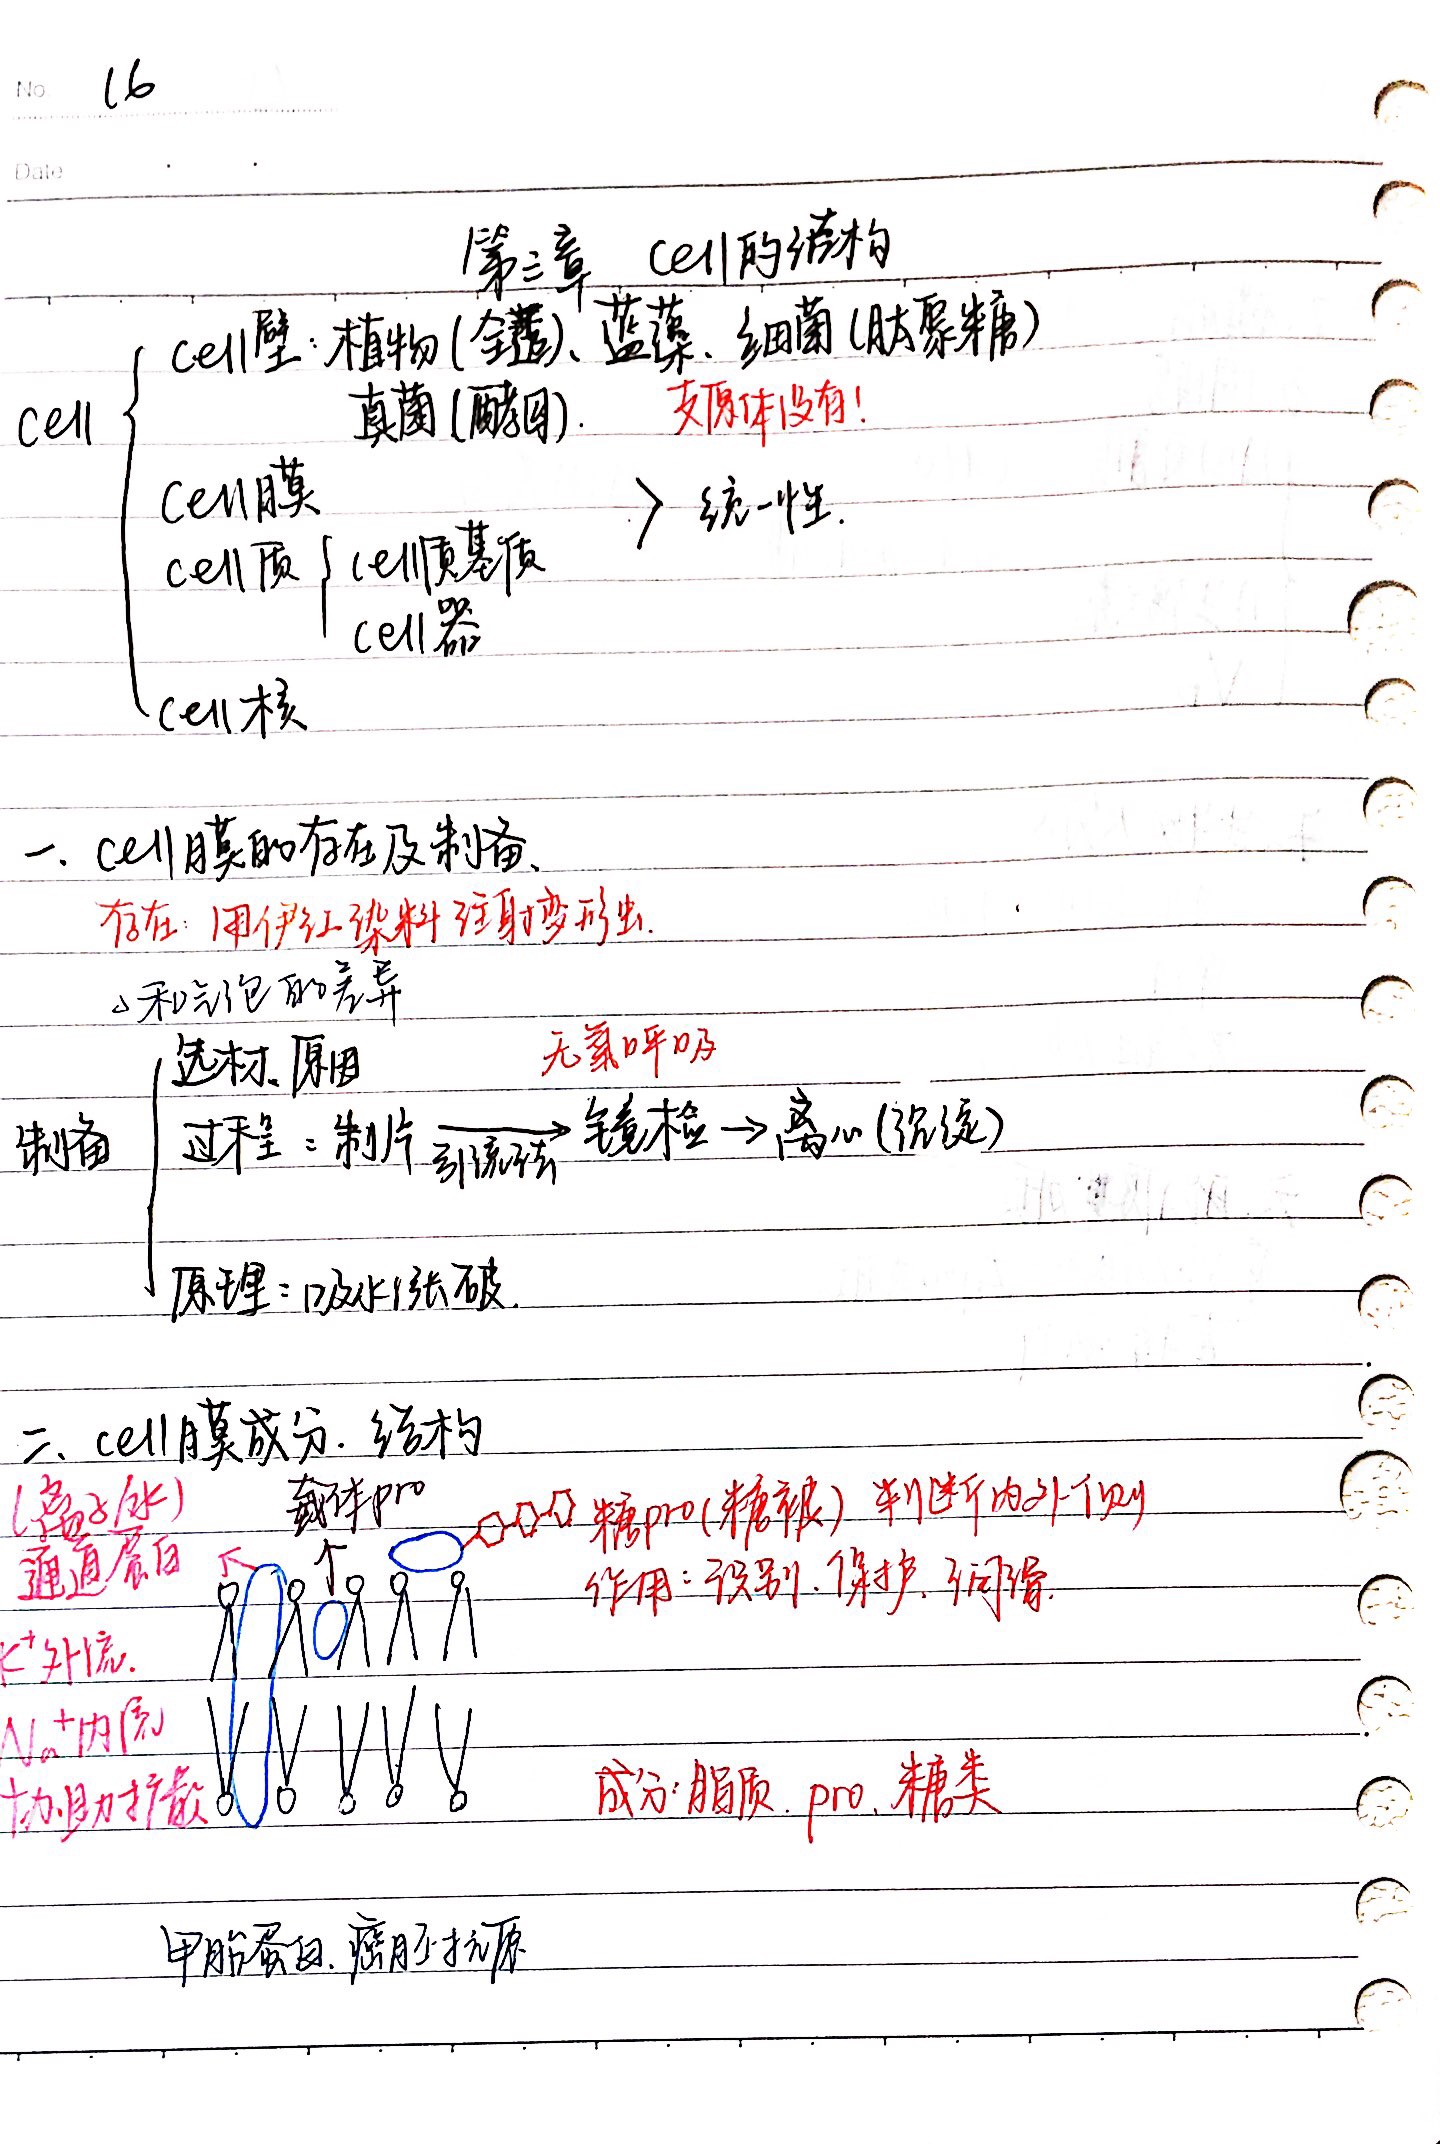 No. 16
Date
第三章 cell的结构
cell
cell壁：植物(全覆)、蓝藻、细菌(肽聚糖)
真菌(酵母). 支原体没有!
cell膜
统一性.
cell质 cell质基质
cell器
cell核
一、cell膜的存在及制备、
存在：用伊红染料注射变形虫.
和气泡的差异
选材、原因 无氧呼吸
制备
过程：制片 引流法 → 镜检 → 离心(沉淀)
原理：吸水涨破.
二、cell膜成分.结构
(离子/水)
通道蛋白
载体pro
糖pro(糖被) 判断内外侧
作用：识别、保护、润滑.
K⁺外流.
Na⁺内流
协助扩散
成分：脂质、pro、糖类
甲胎蛋白、癌胚抗原